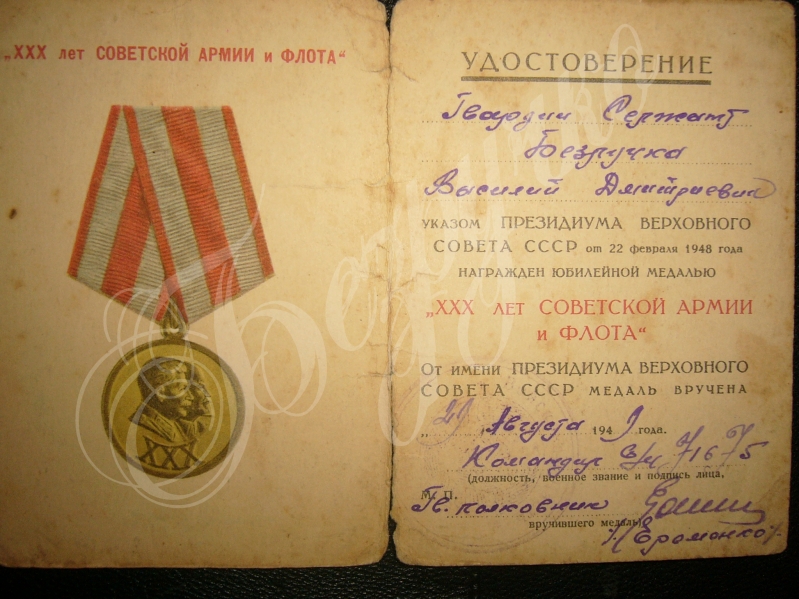 „XXX лет СОВЕТСКОЙ АРМИИ и ФЛОТА“
XXX
УДОСТОВЕРЕНИЕ
Гвардии Сержант
Безручка
Василий Дмитриевич
УКАЗОМ ПРЕЗИДИУМА ВЕРХОВНОГО
СОВЕТА СССР от 22 февраля 1948 года
НАГРАЖДЕН ЮБИЛЕЙНОЙ МЕДАЛЬЮ
„XXX лет СОВЕТСКОЙ АРМИИ
и ФЛОТА“
От имени ПРЕЗИДИУМА ВЕРХОВНОГО
СОВЕТА СССР МЕДАЛЬ ВРУЧЕНА
Августа 1949 года.
Командир в/ч 71675
(должность, военное звание и подпись лица,
М. П.
Гв. полковник
вручившего медаль)
/Еромонко/